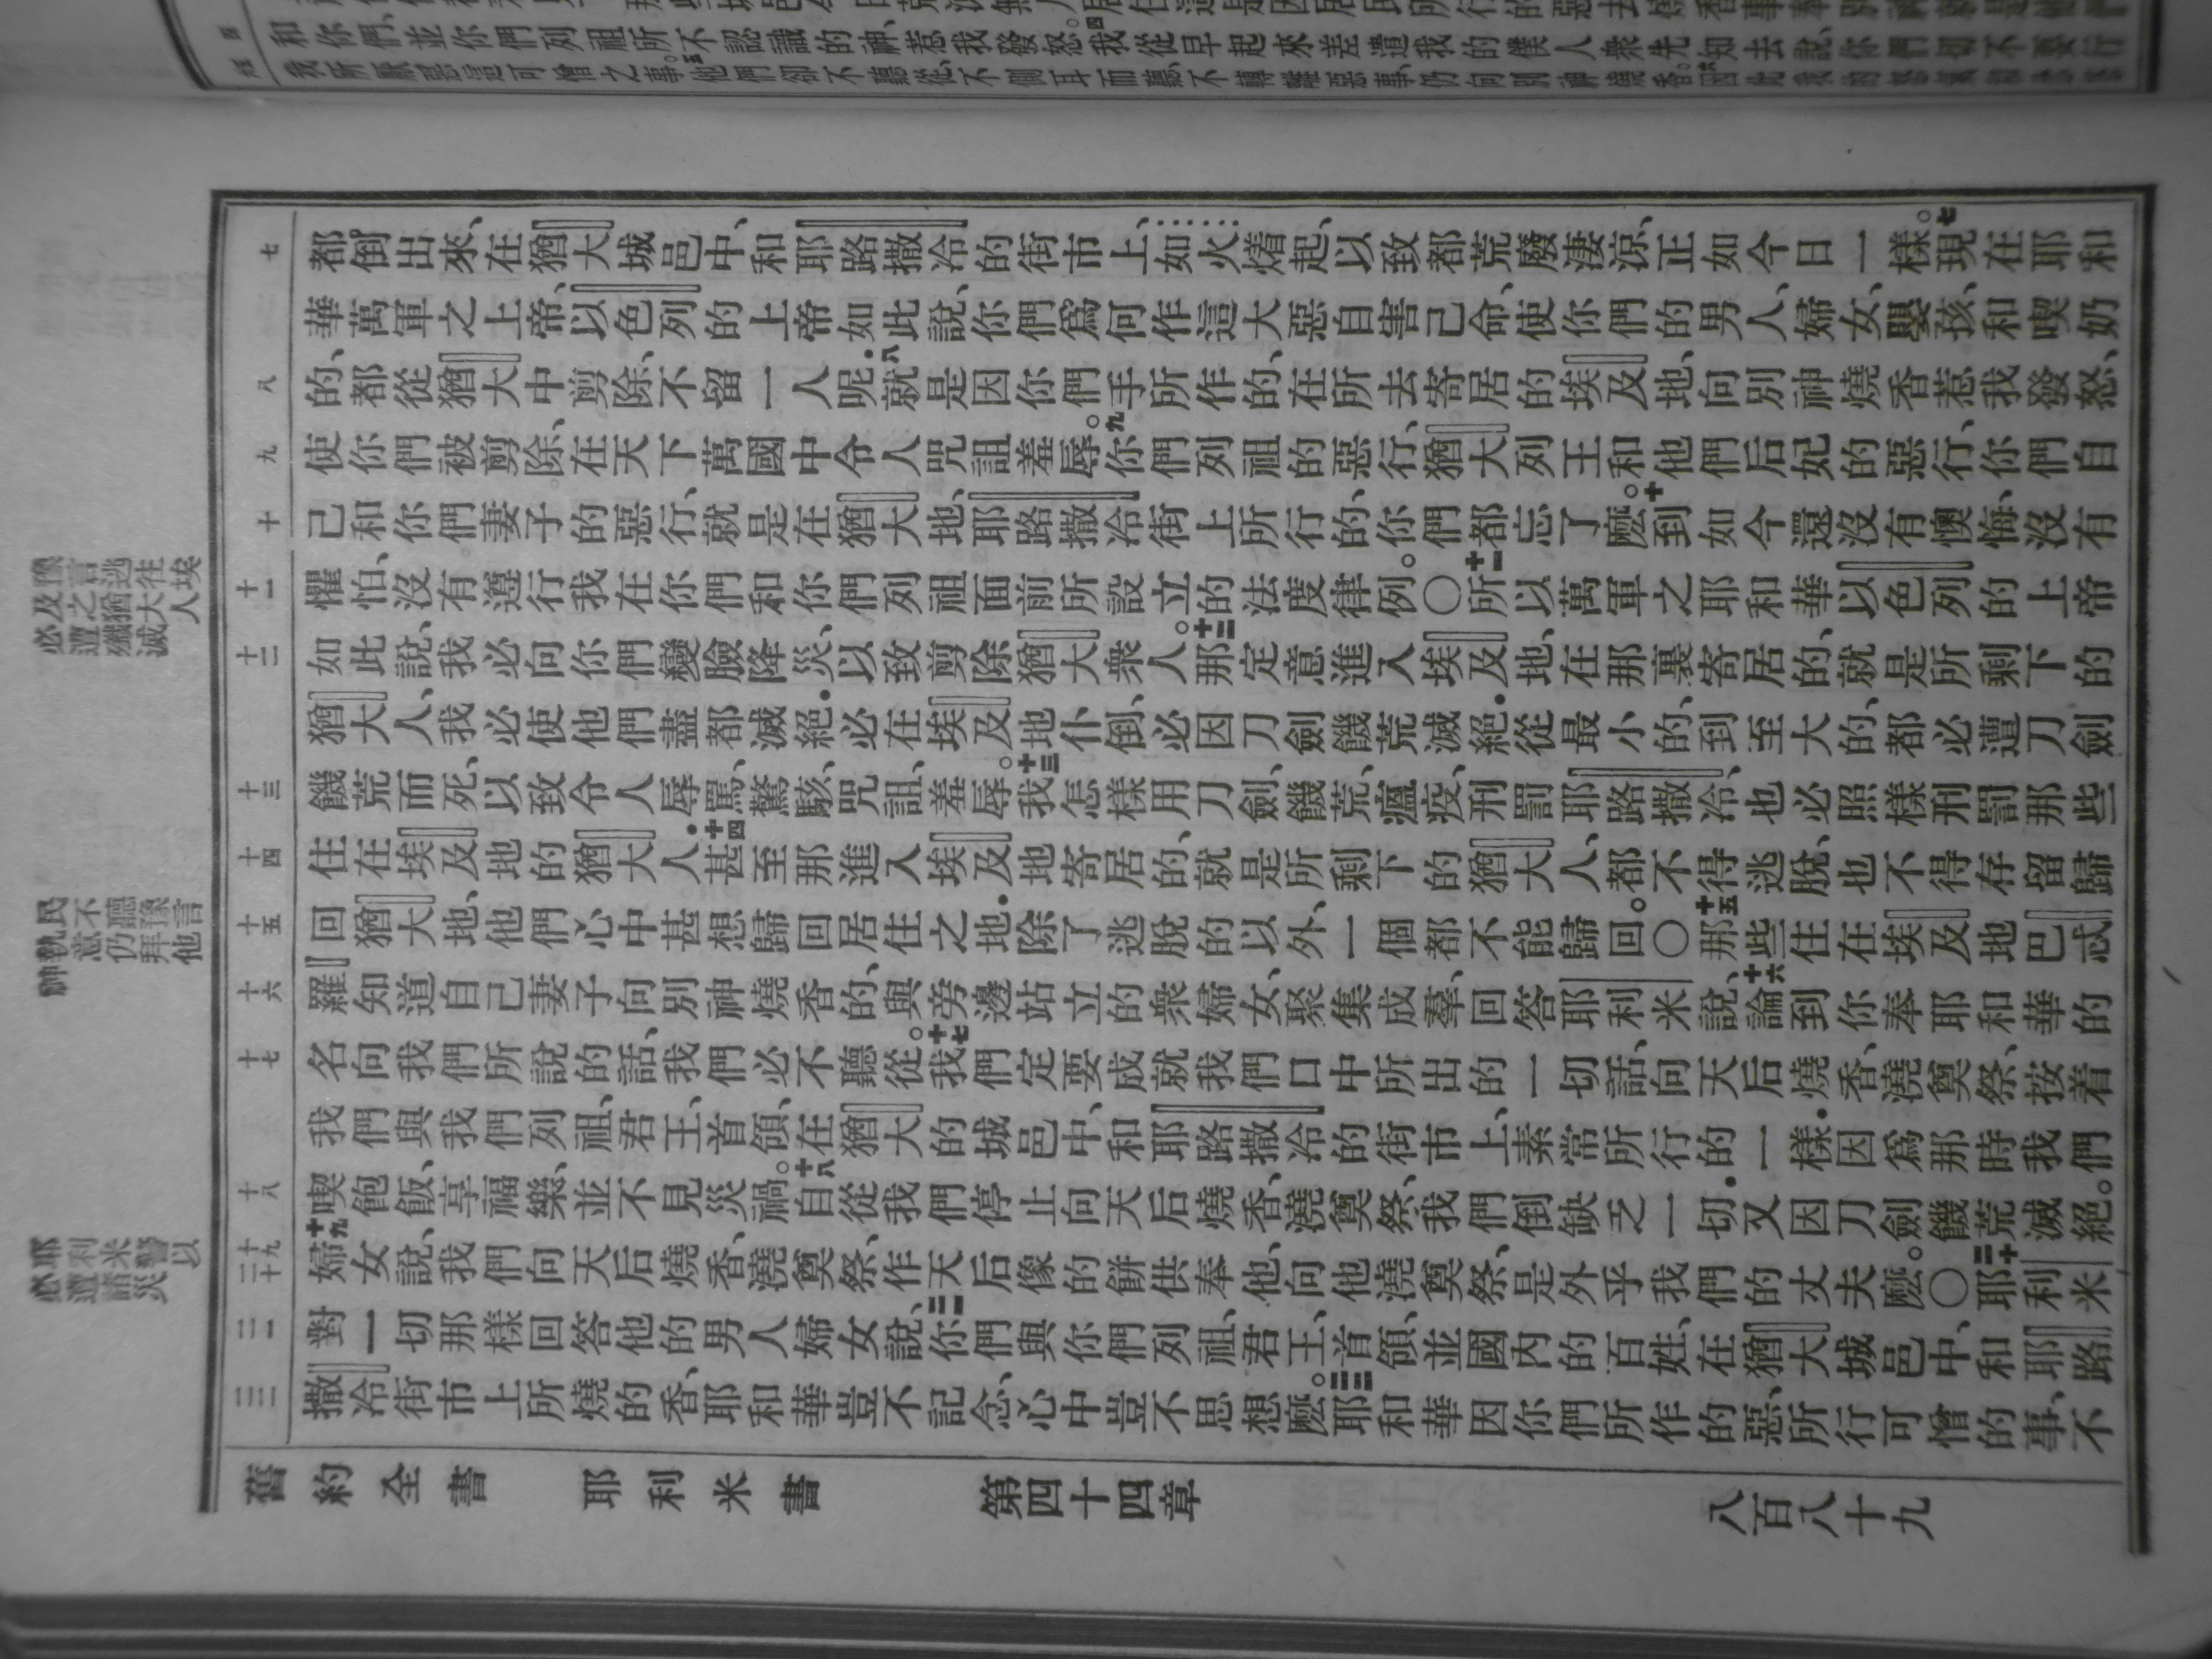 和你們、並你們列祖所不認識的神、惹我發怒。四我從早起來差遣我的僕人衆先知去說、你們切不要行
我所厭惡這可憎之事。五他們卻不聽從、不側耳而聽、不轉離惡事、仍向別神燒香。
都倒出來、在猶大城邑中、和耶路撒冷的街市上、如火燒起、以致都荒廢淒涼、正如今日一樣。七現在耶和
華萬軍之上帝、以色列的上帝如此說、你們爲何作這大惡自害己命、使你們的男人、婦女、嬰孩、和喫奶
的、都從猶大中剪除、不留一人呢．八就是因你們手所作的、在所去寄居的埃及地、向別神燒香惹我發怒、
使你們被剪除、在天下萬國中令人咒詛羞辱。九你們列祖的惡行、猶大列王和他們后妃的惡行、你們自
己和你們妻子的惡行、就是在猶大地、耶路撒冷街上所行的、你們都忘了麽。十到如今還沒有懊悔、沒有
懼怕、沒有遵行我在你們和你們列祖面前所設立的法度律例。〇十一所以萬軍之耶和華以色列的上帝
如此說、我必向你們變臉降災、以致剪除猶大衆人。十二那定意進入埃及地、在那裏寄居的、就是所剩下的
猶大人、我必使他們盡都滅絕．必在埃及地仆倒、必因刀劍饑荒滅絕．從最小的、到至大的、都必遭刀劍
饑荒而死、以致令人辱罵、驚駭、咒詛、羞辱。十三我怎樣用刀劍、饑荒、瘟疫、刑罰耶路撒冷、也必照樣刑罰那些
住在埃及地的猶大人．十四甚至那進入埃及地寄居的、就是所剩下的猶大人、都不得逃脫、也不得存留歸
回猶大地、他們心中甚想歸回居住之地．除了逃脫的以外、一個都不能歸回。〇十五那些住在埃及地巴忒
羅知道自己妻子向別神燒香的、與旁邊站立的衆婦女、聚集成羣、回答耶利米說、十六論到你奉耶和華的
名向我們所說的話、我們必不聽從。十七我們定要成就我們口中所出的一切話、向天后燒香、澆奠祭、按着
我們與我們列祖、君王、首領、在猶大的城邑中、和耶路撒冷的街市上、素常所行的一樣．因爲那時我們
喫飽飯、享福樂、並不見災禍。十八自從我們停止向天后燒香、澆奠祭、我們倒缺乏一切．又因刀劍饑荒滅絕。
十九婦女說、我們向天后燒香、澆奠祭、作天后像的餅供奉他、向他澆奠祭、是外乎我們的丈夫麽。〇二十耶利米
對一切那樣回答他的男人婦女說、二一你們與你們列祖、君王、首領、並國內的百姓、在猶大城邑中、和耶路
撒冷街市上所燒的香、耶和華豈不記念、心中豈不思想麽。二二耶和華因你們所作的惡、所行可憎的事、不
七
八
九
十
十一
十二
十三
十四
十五
十六
十七
十八
十九
二十
二一
二二
豫言逃往埃
及之猶大人
必遭殲滅
民不聽豫言
執意仍拜他
神
耶利米警以
必遭諸災
舊約全書 耶利米書 第四十四章 八百八十九